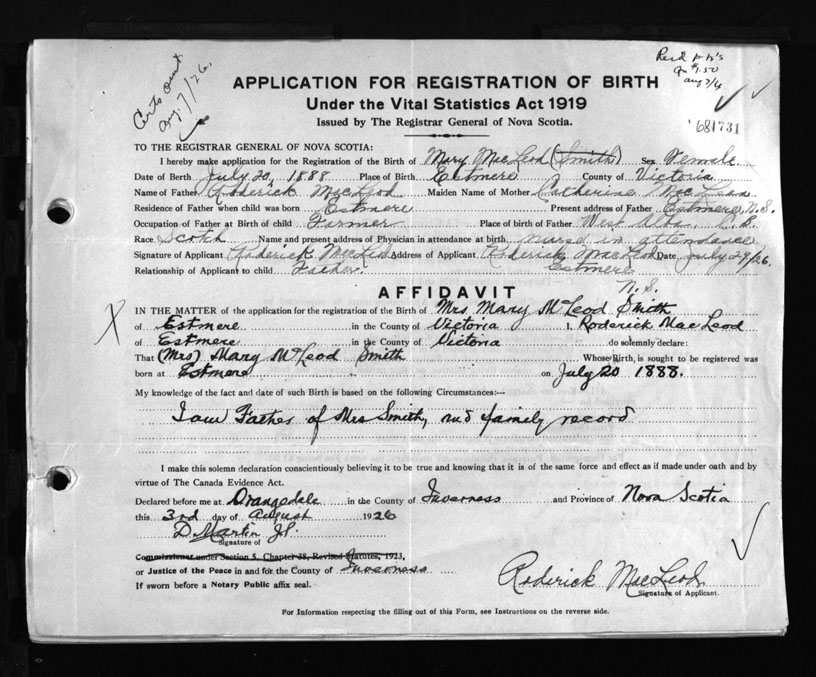 Certs sent
Aug. 7/26.
Rec'd
$1.50
Aug 7/4
681731
APPLICATION FOR REGISTRATION OF BIRTH
Under the Vital Statistics Act 1919
Issued by The Registrar General of Nova Scotia.
TO THE REGISTRAR GENERAL OF NOVA SCOTIA:
I hereby make application for the Registration of the Birth of Mary MacLeod (Smith) Sex Female
Date of Birth July 20, 1888 Place of Birth Estmere County of Victoria
Name of Father Roderick MacLeod Maiden Name of Mother Catherine MacLean
Residence of Father when child was born Estmere Present address of Father Estmere, N.S.
Occupation of Father at Birth of child Farmer Place of birth of Father West Alba, C.B.
Race Scotch Name and present address of Physician in attendance at birth nurse in attendance
Signature of Applicant Roderick MacLeod Address of Applicant Roderick MacLeod Date July 29/26.
Relationship of Applicant to child Father. Estmere
N.S.
AFFIDAVIT
IN THE MATTER of the application for the registration of the Birth of Mrs. Mary McLeod Smith
of Estmere in the County of Victoria I, Roderick MacLeod
of Estmere in the County of Victoria do solemnly declare:
That (Mrs) Mary McLeod Smith Whose Birth, is sought to be registered was
born at Estmere on July 20 1888.
My knowledge of the fact and date of such Birth is based on the following Circumstances:—
I am Father of Mrs Smith, and family record
I make this solemn declaration conscientiously believing it to be true and knowing that it is of the same force and effect as if made under oath and by
virtue of The Canada Evidence Act.
Declared before me at Orangedale in the County of Inverness and Province of Nova Scotia
this 3rd day of August 1926
D. Martin J.P.
Signature of
Commissioner under Section 5, Chapter 38, Revised Statutes, 1923,
or Justice of the Peace in and for the County of Inverness
If sworn before a Notary Public affix seal.
Roderick MacLeod
Signature of Applicant.
For Information respecting the filling out of this Form, see Instructions on the reverse side.